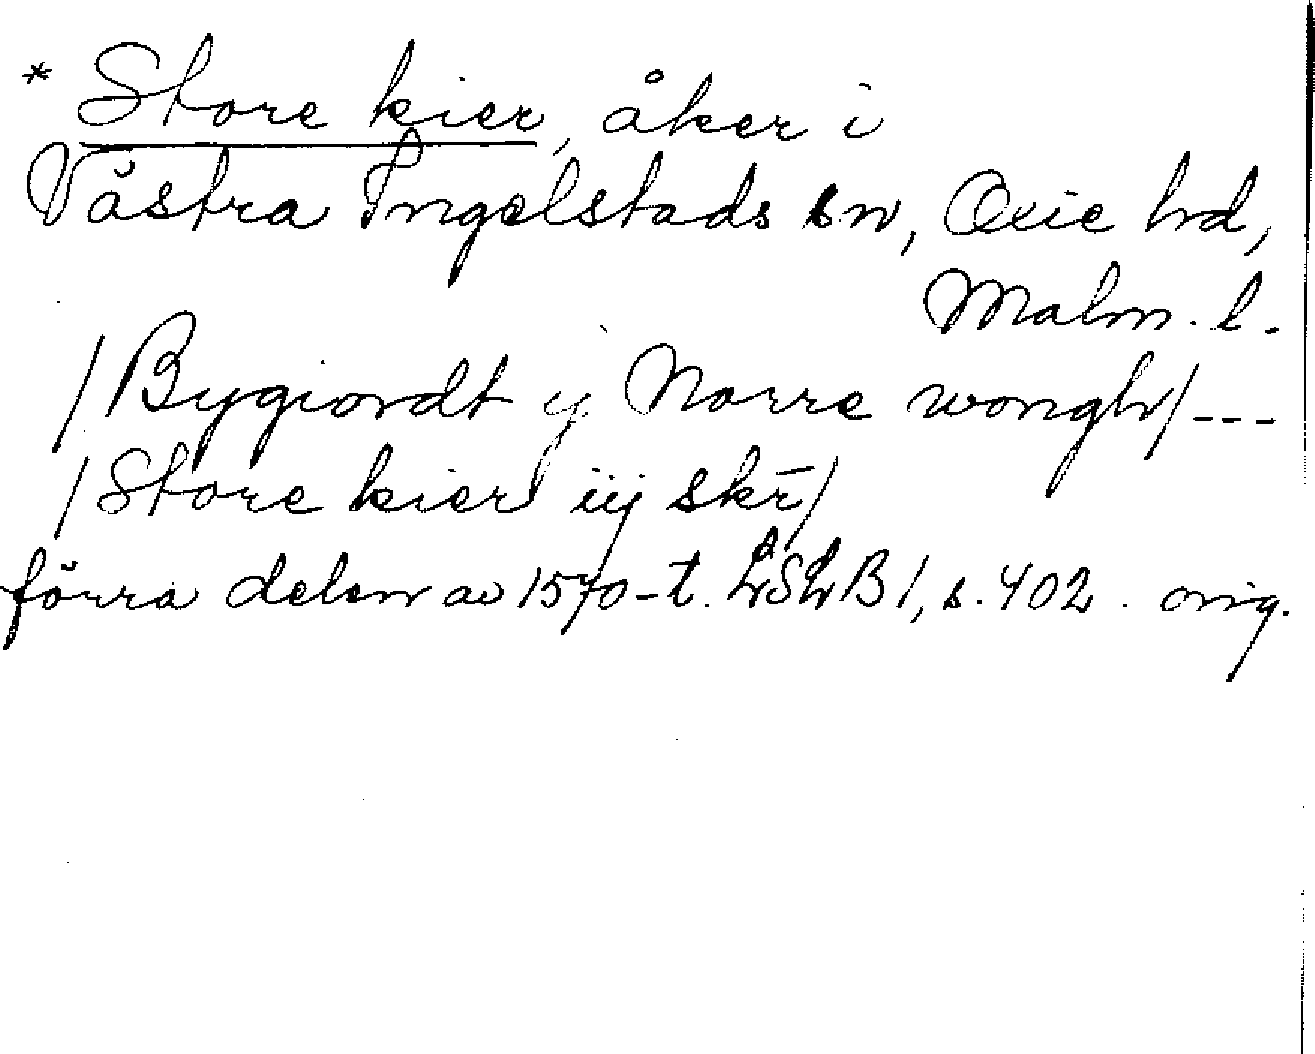 * Store kier, åker i
Västra Ingelstads sn, Oxie hd,
Malm. l.
/Bygiordt y Norre wongh/---
/Store kier iij skr̄/
förra delen av 1570-t. LSLB 1, s. 402. orig.